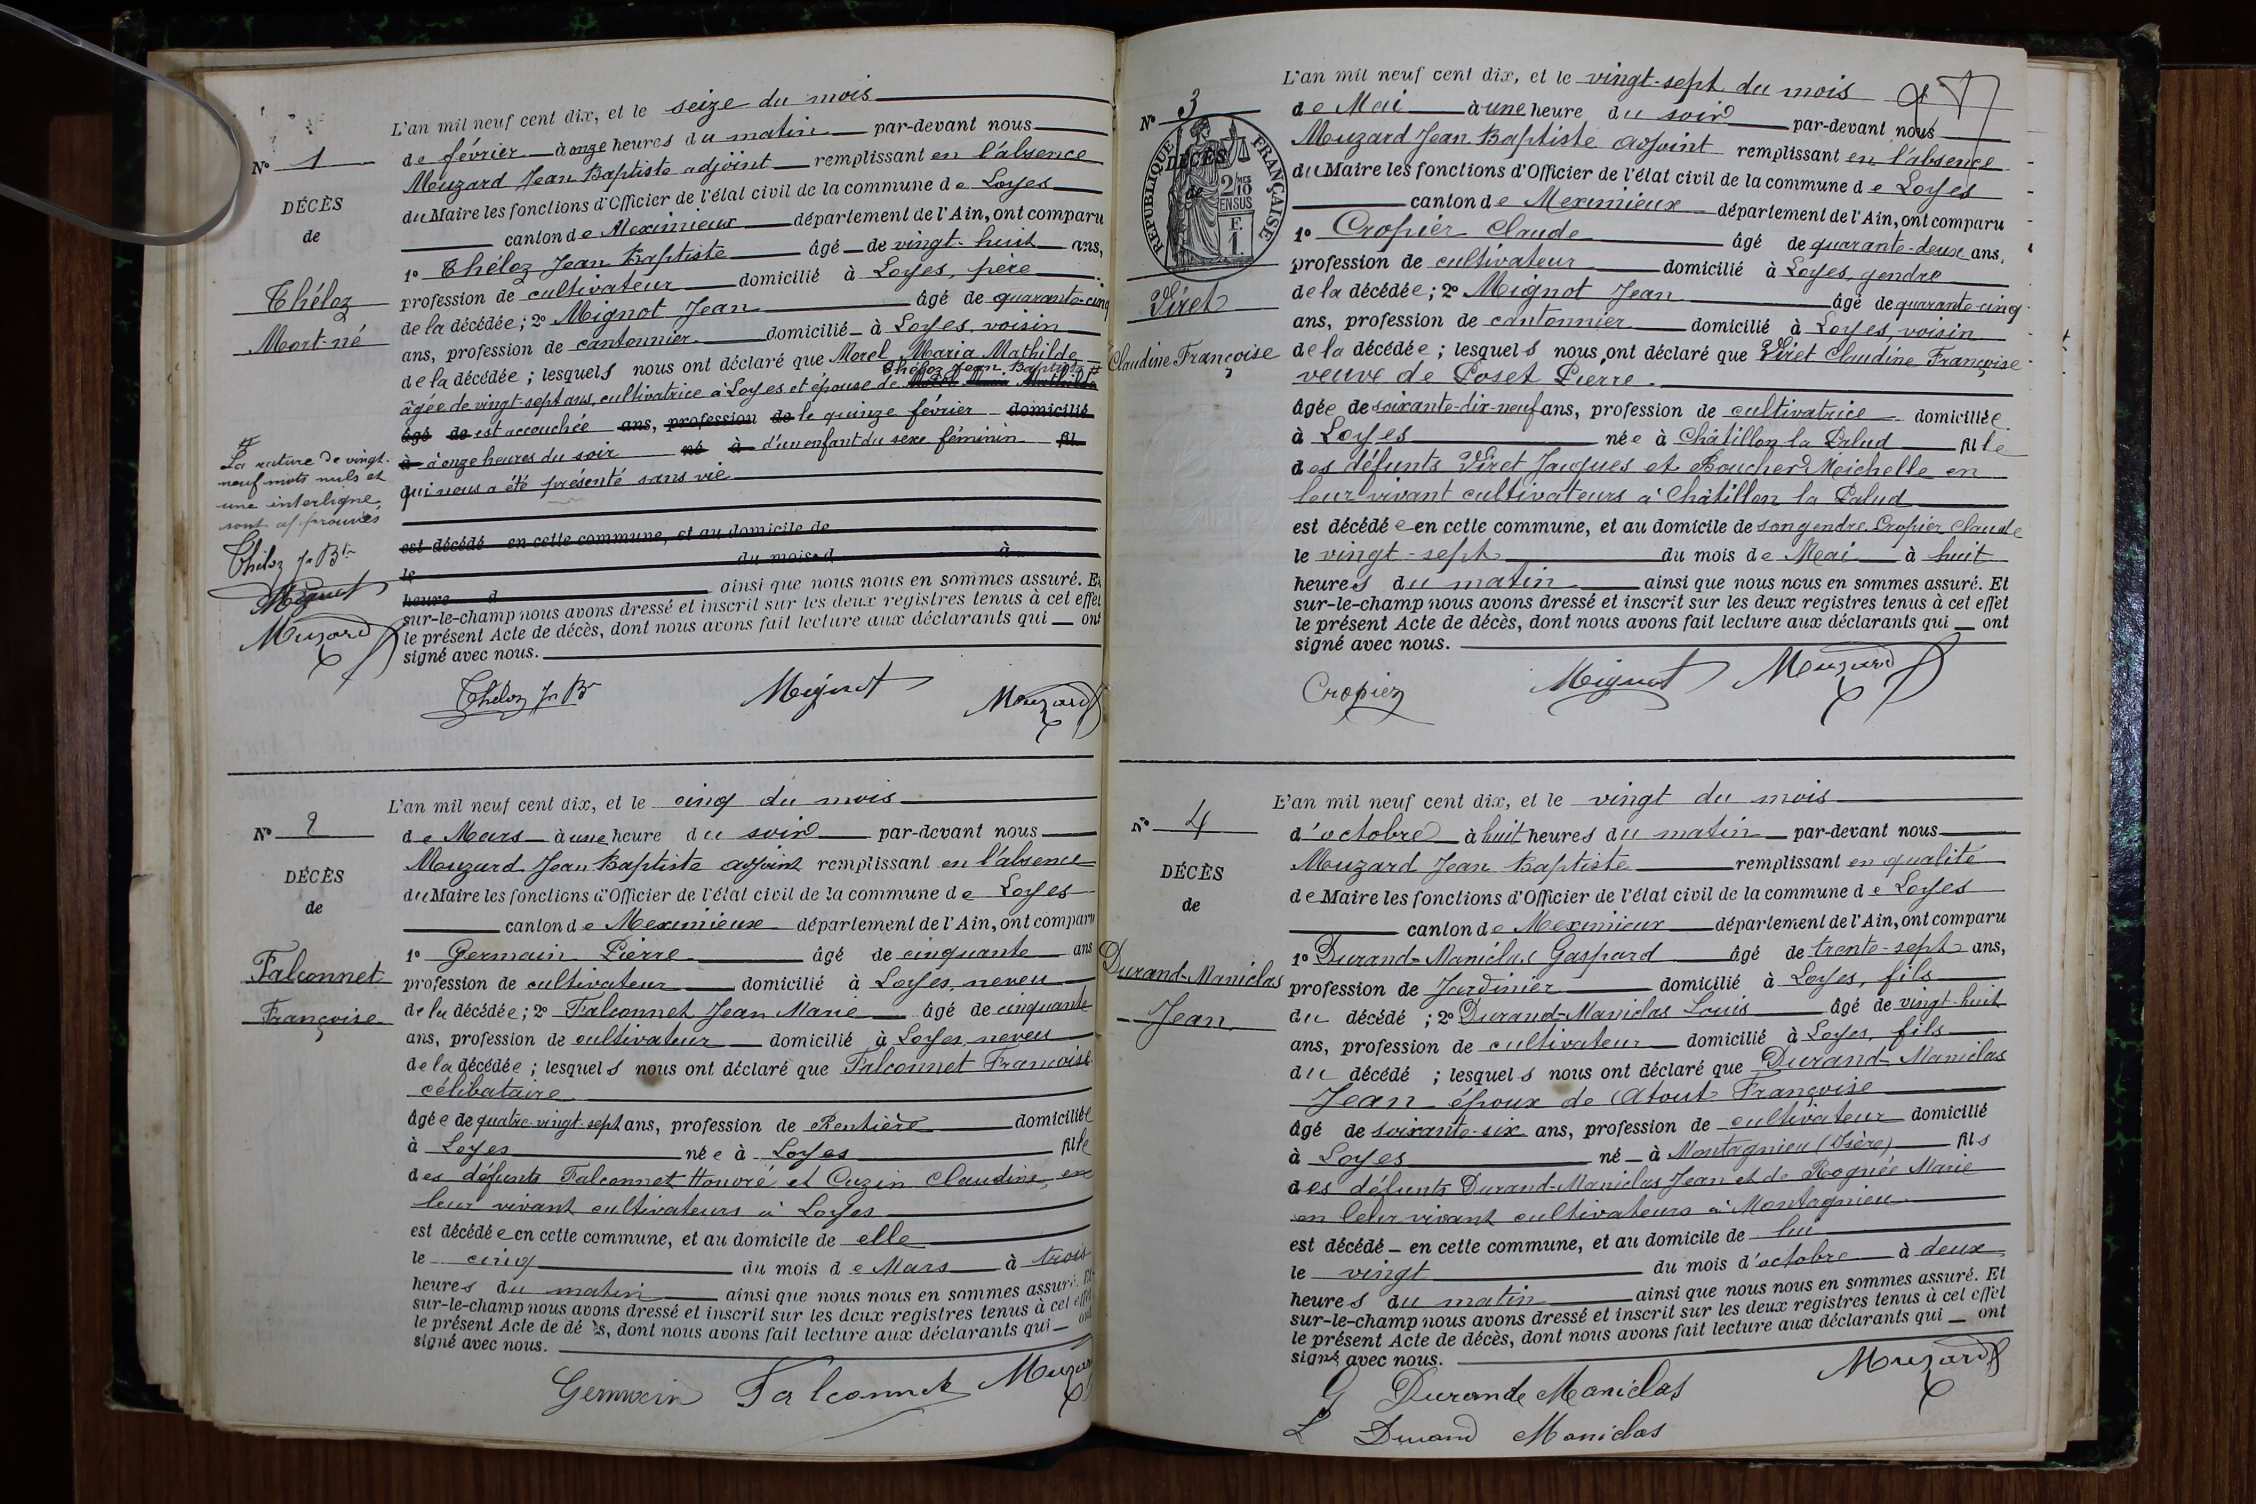 L'an mil neuf cent dix, et le seize du mois
No 1
de février à onze heures du matin par-devant nous
Muzard Jean Baptiste adjoint remplissant en l'absence
DÉCÈS
du Maire les fonctions d'Officier de l'état civil de la commune de Loyes
de
canton de Meximieux département de l'Ain, ont comparu
1o Théloz Jean Baptiste âgé de vingt-huit ans,
Théloz
profession de cultivateur domicilié à Loyes, père
Mort-né
de la décédée; 2o Mignot Jean âgé de quarante-cinq
ans, profession de cantonnier domicilié à Loyes, voisin
de la décédée; lesquels nous ont déclaré que Morel Maria Mathilde
Théloz Jean Baptiste
âgée de vingt-sept ans, cultivatrice à Loyes et épouse de Morel Maria Mathilde
âgé de est accouchée ans, profession de le quinze février domicilié
à à onze heures du soir né à d'un enfant du sexe féminin fil
qui nous a été présenté sans vie
La rature de vingt-
neuf mots nuls et
une interligne
sont approuvés
Théloz Jn Bte
Mignot
Muzard
est décédé en cette commune, et au domicile de
le du mois d à
heure d ainsi que nous nous en sommes assuré. Et
sur-le-champ nous avons dressé et inscrit sur les deux registres tenus à cet effet
le présent Acte de décès, dont nous avons fait lecture aux déclarants qui ont
signé avec nous.
Théloz Jn Bte Mignot Muzard
L'an mil neuf cent dix, et le cinq du mois
No 2
de Mars à une heure du soir par-devant nous
Muzard Jean Baptiste adjoint remplissant en l'absence
DÉCÈS
du Maire les fonctions d'Officier de l'état civil de la commune de Loyes
de
canton de Meximieux département de l'Ain, ont comparu
1o Germain Pierre âgé de cinquante ans
Falconnet
profession de cultivateur domicilié à Loyes, neveu
Françoise
de la décédée; 2o Falconnet Jean Marie âgé de cinquante
ans, profession de cultivateur domicilié à Loyes, neveu
de la décédée; lesquels nous ont déclaré que Falconnet Françoise
célibataire
âgée de quatre-vingt-sept ans, profession de Rentière domiciliée
à Loyes née à Loyes fille
des défunts Falconnet Honoré et Cuzin Claudine, en
leur vivant cultivateurs à Loyes
est décédée en cette commune, et au domicile de elle
le cinq du mois de Mars à trois
heures du matin ainsi que nous nous en sommes assuré. Et
sur-le-champ nous avons dressé et inscrit sur les deux registres tenus à cet effet
le présent Acte de décès, dont nous avons fait lecture aux déclarants qui ont
signé avec nous.
Germain Falconnet Muzard
L'an mil neuf cent dix, et le vingt-sept du mois
No 3
de Mai à une heure du soir par-devant nous
Muzard Jean Baptiste adjoint remplissant en l'absence
RÉPUBLIQUE FRANÇAISE
DÉCÈS
de
2/10 EN SUS
F. 1.
du Maire les fonctions d'Officier de l'état civil de la commune de Loyes
canton de Meximieux département de l'Ain, ont comparu
1o Cropier Claude âgé de quarante-deux ans,
profession de cultivateur domicilié à Loyes, gendre
Viret
de la décédée; 2o Mignot Jean âgé de quarante-cinq
ans, profession de cantonnier domicilié à Loyes, voisin
Claudine Françoise
de la décédée; lesquels nous ont déclaré que Viret Claudine Françoise
veuve de Poset Pierre
âgée de soixante-dix-neuf ans, profession de cultivatrice domiciliée
à Loyes née à Châtillon la Palud fille
des défunts Viret Jacques et Boucher Meichelle en
leur vivant cultivateurs à Châtillon la Palud
est décédée en cette commune, et au domicile de son gendre Cropier Claude
le vingt-sept du mois de Mai à huit
heures du matin ainsi que nous nous en sommes assuré. Et
sur-le-champ nous avons dressé et inscrit sur les deux registres tenus à cet effet
le présent Acte de décès, dont nous avons fait lecture aux déclarants qui ont
signé avec nous.
Cropier Mignot Muzard
L'an mil neuf cent dix, et le vingt du mois
No 4
d'octobre à huit heures du matin par-devant nous
Muzard Jean Baptiste remplissant en qualité
DÉCÈS
de Maire les fonctions d'Officier de l'état civil de la commune de Loyes
de
canton de Meximieux département de l'Ain, ont comparu
1o Durand-Maniclas Gaspard âgé de trente-sept ans,
Durand-Maniclas
profession de Jardinier domicilié à Loyes, fils
Jean
du décédé; 2o Durand-Maniclas Louis âgé de vingt-huit
ans, profession de cultivateur domicilié à Loyes, fils
du décédé; lesquels nous ont déclaré que Durand-Maniclas
Jean époux de Atout Françoise
âgé de soixante-six ans, profession de cultivateur domicilié
à Loyes né à Montagnieu (Isère) fils
des défunts Durand-Maniclas Jean et de Rognée Marie
en leur vivant cultivateurs à Montagnieu
est décédé en cette commune, et au domicile de lui
le vingt du mois d'octobre à deux
heures du matin ainsi que nous nous en sommes assuré. Et
sur-le-champ nous avons dressé et inscrit sur les deux registres tenus à cet effet
le présent Acte de décès, dont nous avons fait lecture aux déclarants qui ont
signé avec nous.
G Durande Maniclas Muzard
L Durand Maniclas